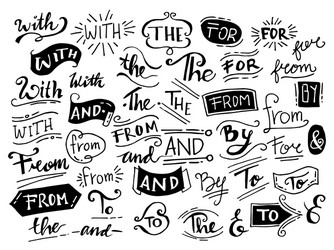 with WITH THE FOR FOR for
WITH the The FOR from
With With The THE FROM BY
WITH AND FROM from
from and AND By For &
From from AND By To To
FROM To To The & TO &
the and